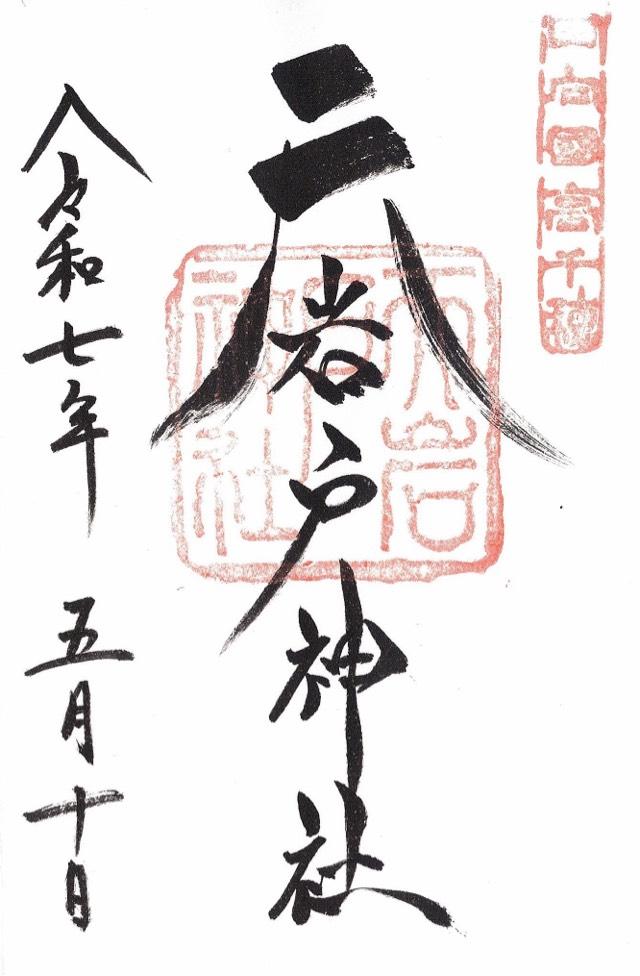 日向國高千穂
天岩戸神社
天岩戸神社
令和七年 五月十日